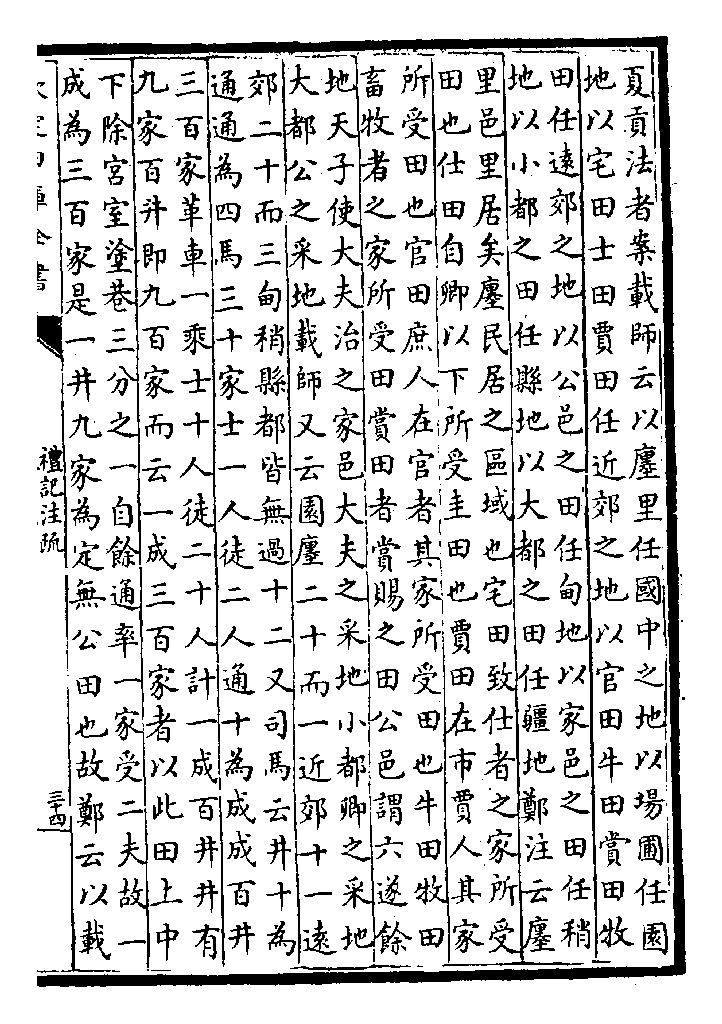 夏貢法者案載師云以廛里任國中之地以場圃任園
地以宅田士田賈田任近郊之地以官田牛田賞田牧
田任遠郊之地以公邑之田任甸地以家邑之田任稍
地以小都之田任縣地以大都之田任疆地鄭注云廛
里邑里居矣廛民居之區域也宅田致仕者之家所受
田也仕田自卿以下所受圭田也賈田在市賈人其家
所受田也官田庶人在官者其家所受田也牛田牧田
畜牧者之家所受田賞田者賞賜之田公邑謂六遂餘
地天子使大夫治之家邑大夫之采地小都卿之采地
大都公之采地載師又云園廛二十而一近郊十一遠
郊二十而三甸稍縣都皆無過十二又司馬云井十為
通通為四馬三十家士一人徒二人通十為成成百井
三百家革車一乘士十人徒二十人計一成百井井有
九家百井即九百家而云一成三百家者以此田上中
下除宮室塗巷三分之一自餘通率一家受二夫故一
成為三百家是一井九家為定無公田也故鄭云以載
欽定四庫全書
禮記注疏
三十四